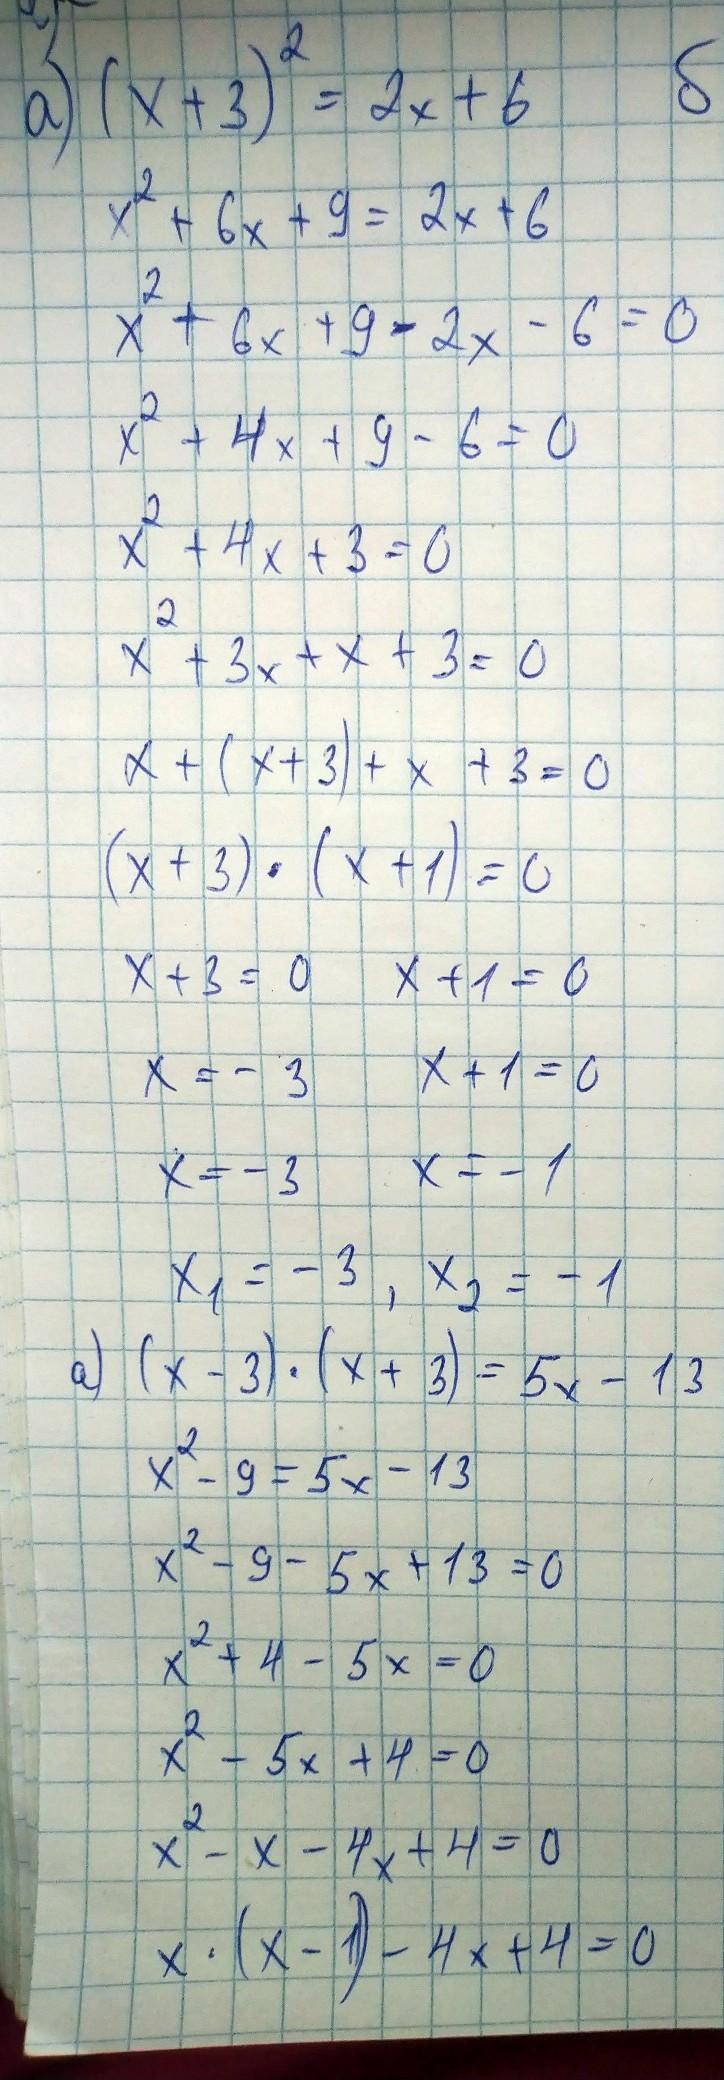 а) (x+3)² = 2x+6 б
x² + 6x + 9 = 2x+6
x² + 6x + 9 - 2x - 6 = 0
x² + 4x + 9 - 6 = 0
x² + 4x + 3 = 0
x² + 3x + x + 3 = 0
x + (x+3) + x + 3 = 0
(x+3) · (x+1) = 0
x+3 = 0 x+1 = 0
x = - 3 x+1 = 0
x = - 3 x = - 1
x₁ = - 3 , x₂ = - 1
а) (x - 3) · (x + 3) = 5x - 13
x² - 9 = 5x - 13
x² - 9 - 5x + 13 = 0
x² + 4 - 5x = 0
x² - 5x + 4 = 0
x² - x - 4x + 4 = 0
x · (x - 1) - 4x + 4 = 0